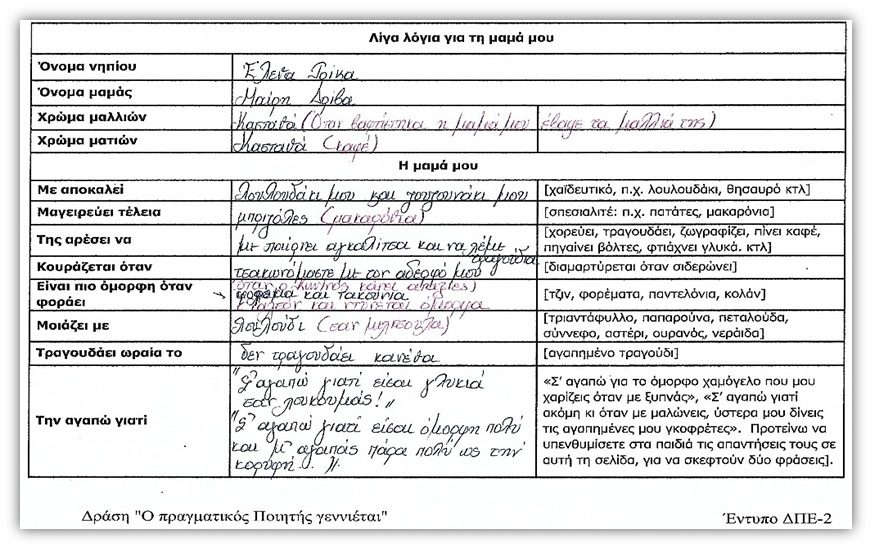 Λίγα λόγια για τη μαμά μου
Όνομα νηπίου Έλενα Γρίκα
Όνομα μαμάς Μαίρη Δρίβα
Χρώμα μαλλιών Καστανά (Όταν βαφτίστηκα η μαμά μου έβαψε τα μαλλιά της)
Χρώμα ματιών Καστανά (καφέ)
Η μαμά μου
Με αποκαλεί λουλουδάκι μου και ζουζουνάκι μου [χαϊδευτικό, π.χ. λουλουδάκι, θησαυρό κτλ]
Μαγειρεύει τέλεια μπριζόλες (μακαρόνια) [σπεσιαλιτέ: π.χ. πατάτες, μακαρόνια]
Της αρέσει να με παίρνει αγκαλίτσα και να λέμε τραγούδια [χορεύει, τραγουδάει, ζωγραφίζει, πίνει καφέ,
πηγαίνει βόλτες, φτιάχνει γλυκά. κτλ]
Κουράζεται όταν τσακωνόμαστε με τον αδερφό μου [διαμαρτύρεται όταν σιδερώνει]
(όταν ο κάνει αταξίες)
Είναι πιο όμορφη όταν
φοράει φορέματα και τακούνια [τζιν, φορέματα, παντελόνια, κολάν]
και ντύνεται όμορφα
Μοιάζει με λουλούδι (σαν) [τριαντάφυλλο, παπαρούνα, πεταλούδα,
σύννεφο, αστέρι, ουρανός, νεράιδα]
Τραγουδάει ωραία το δεν τραγουδάει κανένα [αγαπημένο τραγούδι]
Την αγαπώ γιατί
"Σ' αγαπώ γιατί είσαι γλυκιά
σαν λουκουμάς!"
"Σ' αγαπώ γιατί είσαι όμορφη πολύ
και μ' αγαπάς πάρα πολύ ως την
κορυφή..."
«Σ' αγαπώ για το όμορφο χαμόγελο που μου
χαρίζεις όταν με ξυπνάς», «Σ' αγαπώ γιατί
ακόμη κι όταν με μαλώνεις, ύστερα μου δίνεις
τις αγαπημένες μου γκοφρέτες». Προτείνω να
υπενθυμίσετε στα παιδιά τις απαντήσεις τους σε
αυτή τη σελίδα, για να σκεφτούν δύο φράσεις].
Δράση "Ο πραγματικός Ποιητής γεννιέται" Έντυπο ΔΠΕ-2